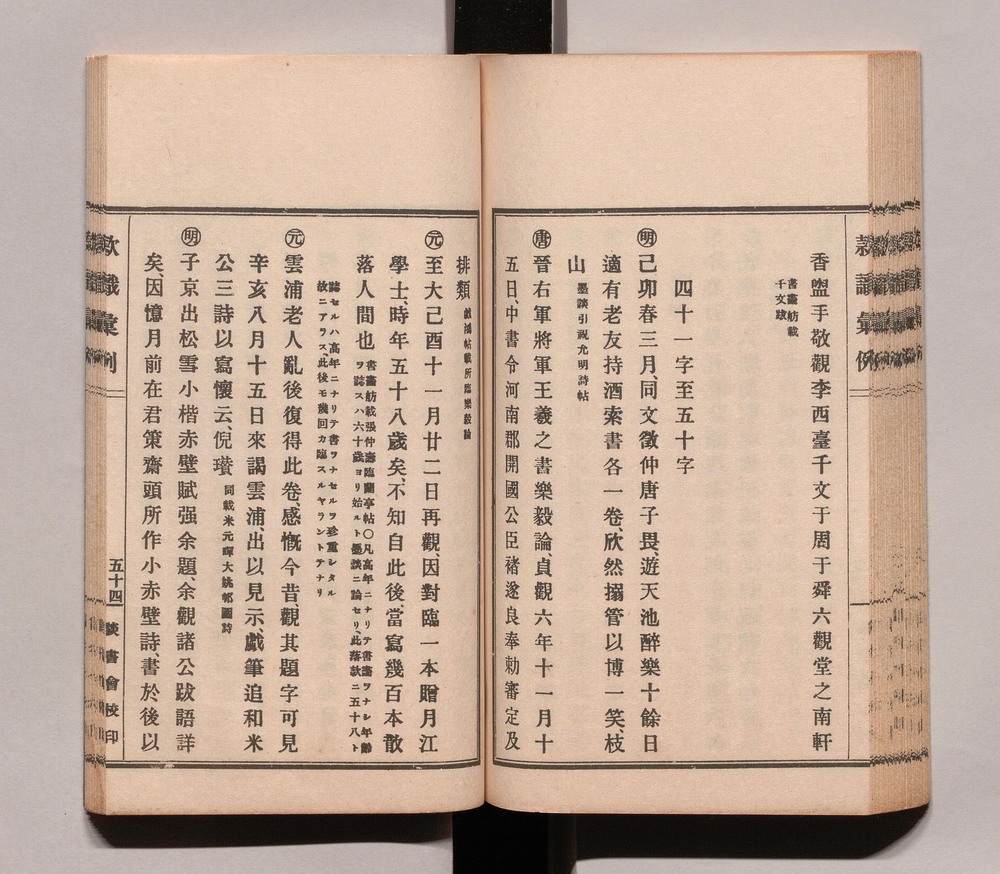 香盥手敬觀李西臺千文于周于舜六觀堂之南軒
書畵舫載
千文跋
四十一字至五十字
㊔明己卯春三月、同文徵仲唐子畏、遊天池醉樂十餘日
適有老友持酒索書各一卷、欣然搦管以博一笑、枝
山 墨談引祝允明詩帖
唐晉右軍將軍王羲之書樂毅論、貞觀六年十一月十
五日、中書令河南郡開國公臣褚遂良奉勅審定及
排類 戲鴻帖載所臨樂毅論
元至大己酉十一月廿二日再觀、因對臨一本贈月江
學士、時年五十八歲矣、不知自此後、當寫幾百本散
落人間也 書畵舫載張仲壽臨蘭亭帖〇凡高年ニナリテ書畵ヲナシ年齡
ヲ誌スハ六十歲ヨリ始ルト墨談ニ論セリ、此落款ニ五十八ト
誌セルハ高年ニナリテ書ヲナセルヲ珍重シタル
故ニアラス、此後モ幾回カ臨スルヤラントテナリ
元雲浦老人亂後復得此卷、感慨今昔、觀其題字可見
辛亥八月十五日來謁雲浦、出以見示、戲筆追和米
公三詩以寫懷云、倪瓚 同載米元暉大姚邨圖詩
明子京出松雪小楷赤壁賦强余題、余觀諸公跋語詳
矣、因憶月前在君策齋頭所作小赤壁詩、書於後以
款識彙例
五十四
談書會校印